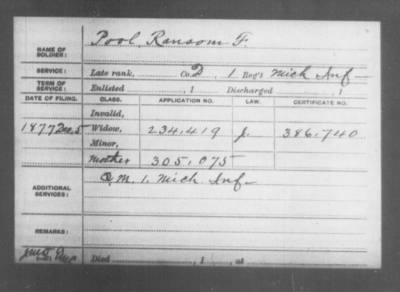 NAME OF SOLDIER: Pool, Ransom F.
SERVICE: Late rank, Co. D, 1 Reg't Mich Inf
TERM OF SERVICE: Enlisted , 1 Discharged , 1
DATE OF FILING. CLASS. APPLICATION NO. LAW. CERTIFICATE NO.
Invalid,
1877 Widow, 234,419 386,740
Minor,
Mother 305,075
ADDITIONAL SERVICES: Q.M. 1. Mich Inf
REMARKS:
Died , 1 , at